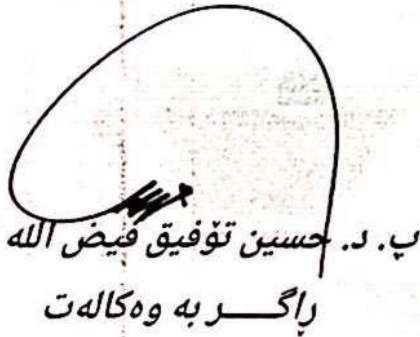 پ. د. حسين تۆفيق فيض الله
ڕاگـــــر به وەکالەت